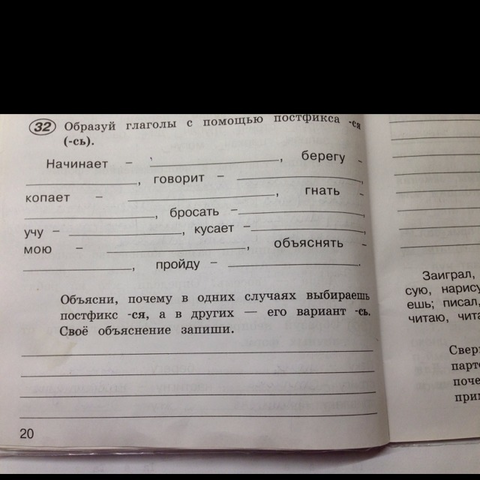 32 Образуй глаголы с помощью постфикса -ся
(-сь).
Начинает – , берегу –
, говорит – ,
копает – гнать –
, бросать – ,
учу – , кусает – ,
мою – , объяснять –
, пройду – .
Объясни, почему в одних случаях выбираешь
постфикс -ся, а в других — его вариант -сь.
Своё объяснение запиши.
20
Заиграл,
сую, нарису
ешь; писал,
читаю, чита
Сверь
парто
поче
прим